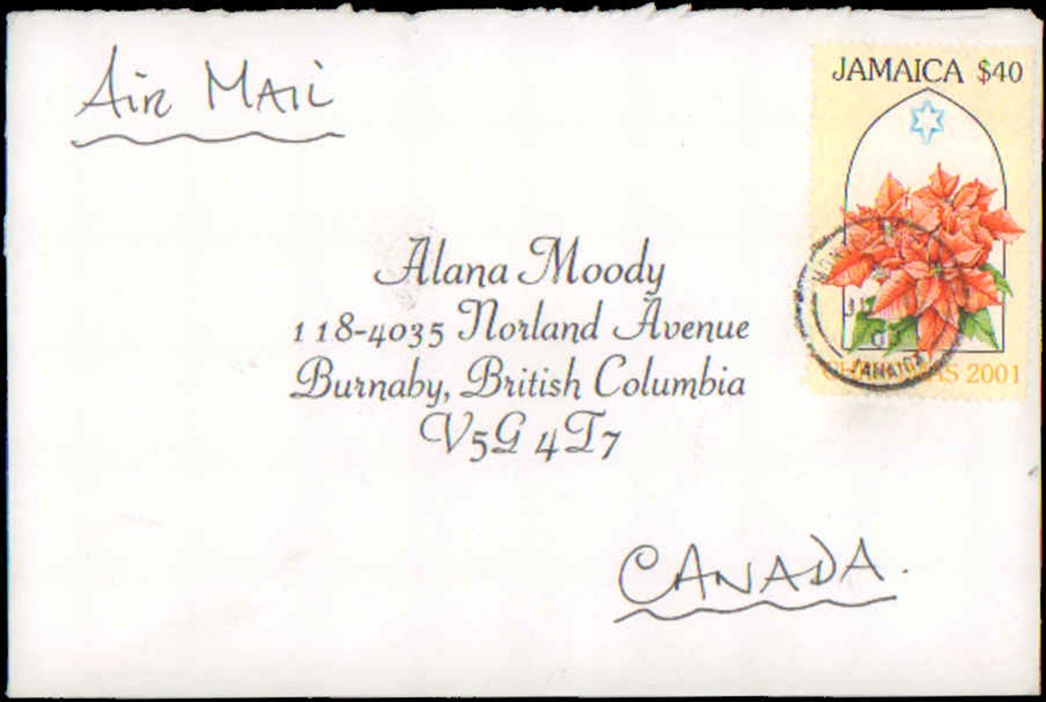 Air Mail
JAMAICA $40
Alana Moody
118-4035 Norland Avenue
Burnaby, British Columbia
V5G 4T7
JAMAICA
2001
CANADA.